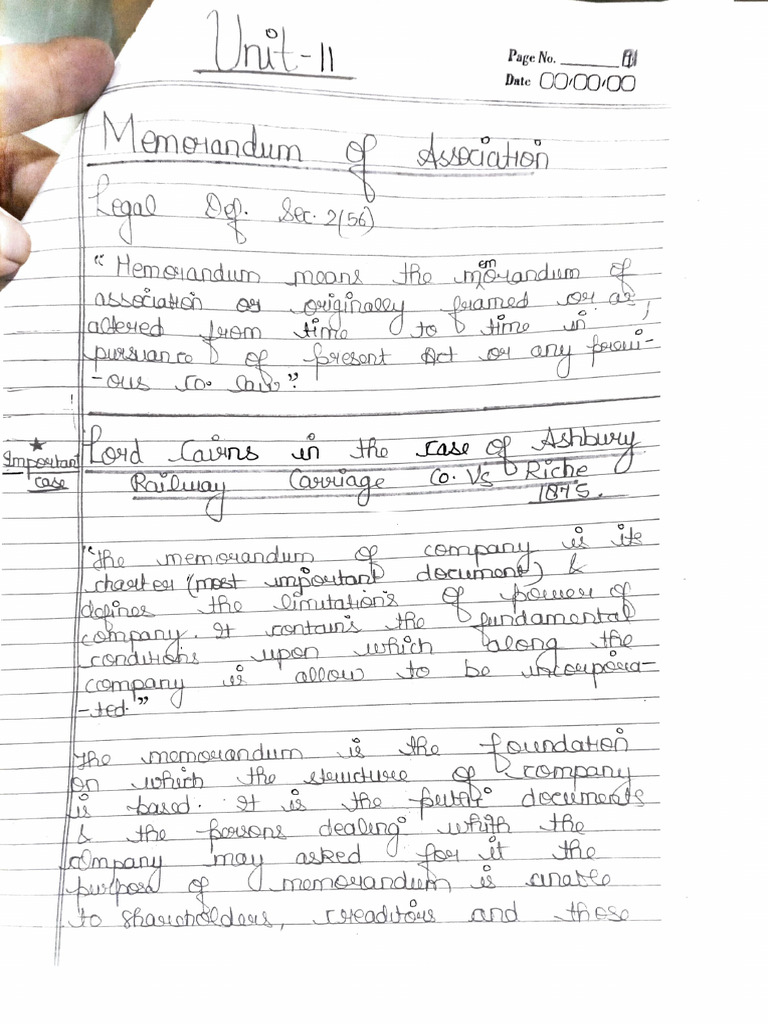 Unit-II
Page No.
Date 00/00/00
Memorandum of Association
Legal Def. Sec. 2(56)
"Memorandum means the memorandum of
association or originally framed or as,
altered from time to time in
pursuance of present Act or any previ-
-ous co. law."
★
Important
case
Lord Cairns in the case of Ashbury
Railway Carriage Co. Vs Riche
1875.
"The memorandum of company is its
charter (most important document) &
defines the limitations of power of
company. It contains the fundamental
conditions upon which along the
company is allow to be incorpora-
-ted."
The memorandum is the foundation
on which the structure of company
is based. It is the public documents
& the persons dealing whith the
company may asked for it the
purpose of memorandum is enable
to shareholders, creaditors and those